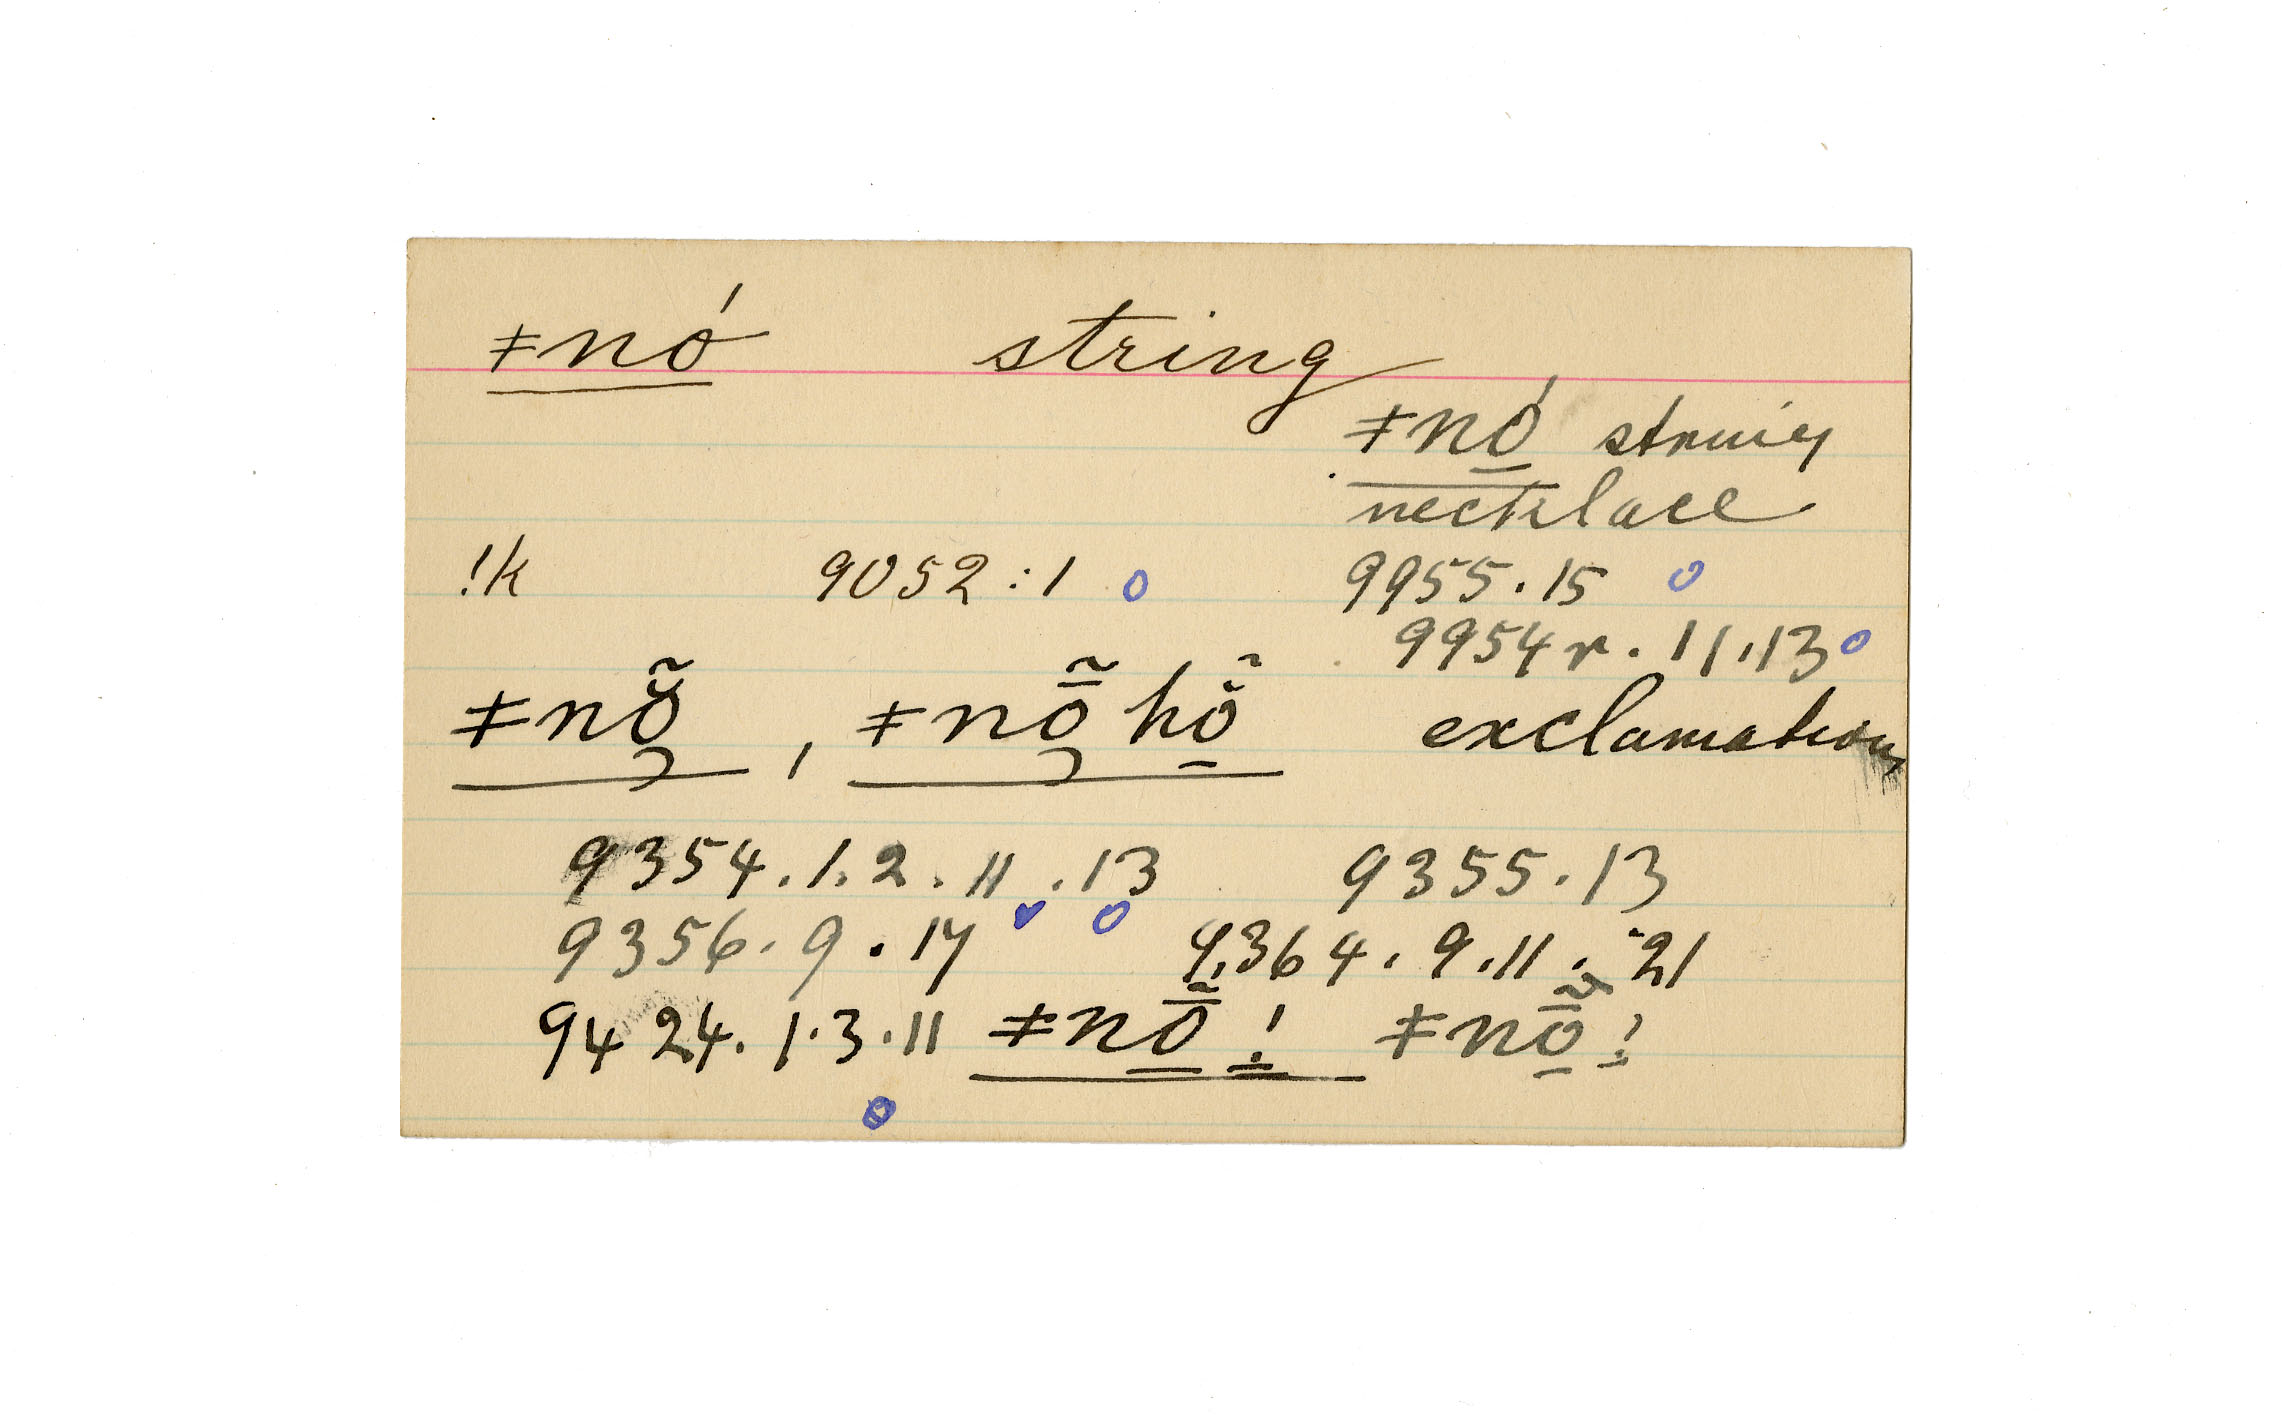 ǂnó string
ǂnó̱ string
necklace
!k 9052:1 9955.15
9954r.11.13
ǂnõ̆, ǂnȭ hõ̱̆ exclamation
9354.1.2.11.13 9355.13
9356.9.17 9364.9.11.21
9424.1.3.11 ǂnȭ̱! ǂnȭ̱!